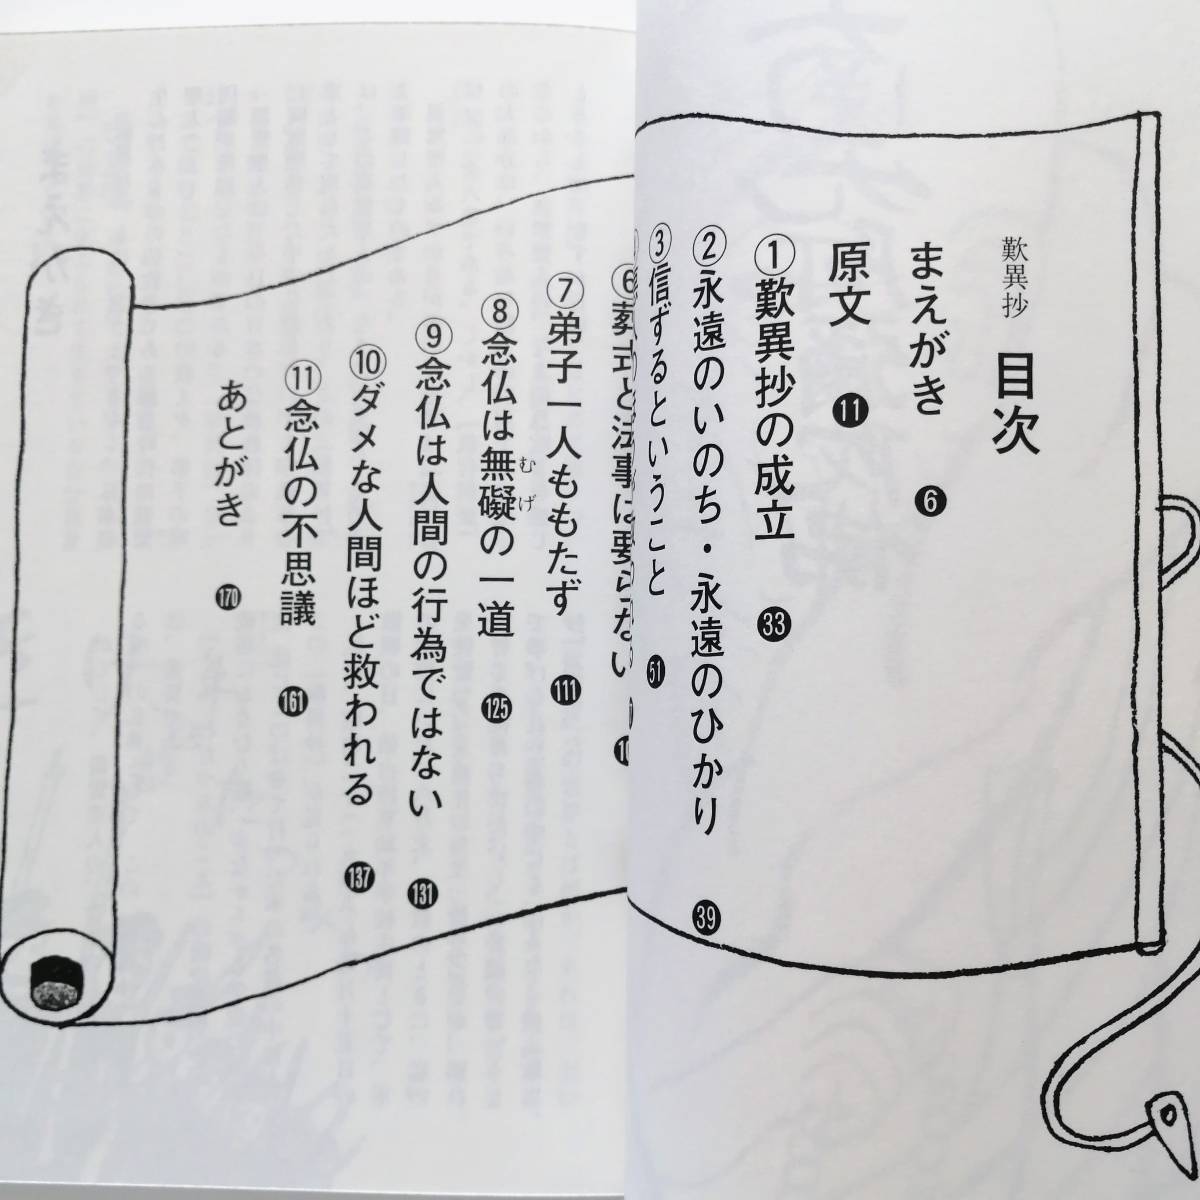 歎異抄 目次
まえがき 6
原文 11
①歎異抄の成立 33
②永遠のいのち・永遠のひかり 39
③信ずるということ 51
⑥葬式と法事は要らない
⑦弟子一人ももたず 111
⑧念仏は無礙の一道 125
むげ
⑨念仏は人間の行為ではない 131
⑩ダメな人間ほど救われる 137
⑪念仏の不思議 161
あとがき 170